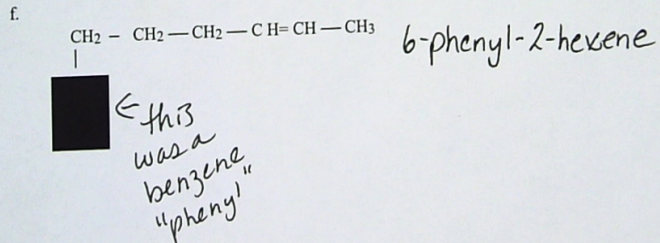 f.
CH2 – CH2 — CH2 — C H= CH — CH3
6-phenyl-2-hexene
← this
was a
benzene
"phenyl"